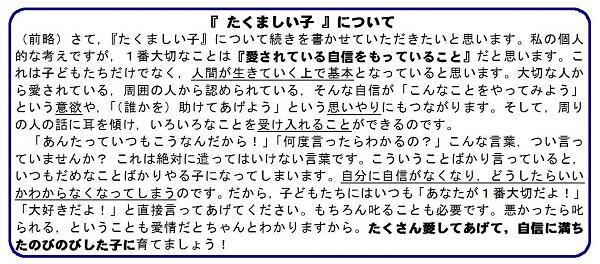 『 たくましい子 』について
（前略）さて，『たくましい子』について続きを書かせていただきたいと思います。私の個人
的な考えですが，１番大切なことは『愛されている自信をもっていること』だと思います。こ
れは子どもたちだけでなく，人間が生きていく上で基本となっていると思います。大切な人か
ら愛されている，周囲の人から認められている，そんな自信が「こんなことをやってみよう」
という意欲や，「(誰かを) 助けてあげよう」という思いやりにもつながります。そして，周り
の人の話に耳を傾け，いろいろなことを受け入れることができるのです。
「あんたっていつもこうなんだから！」「何度言ったらわかるの？」こんな言葉，つい言っ
ていませんか？ これは絶対に造ってはいけない言葉です。こういうことばかり言っていると，
いつもだめなことばかりやる子になってしまいます。自分に自信がなくなり，どうしたらいい
かわからなくなってしまうのです。だから，子どもたちにはいつも「あなたが１番大切だよ！」
「大好きだよ！」と直接言ってあげてください。もちろん叱ることも必要です。悪かったら叱
られる，ということも愛情だとちゃんとわかりますから。たくさん愛してあげて，自信に満ち
たのびのびした子に育てましょう！